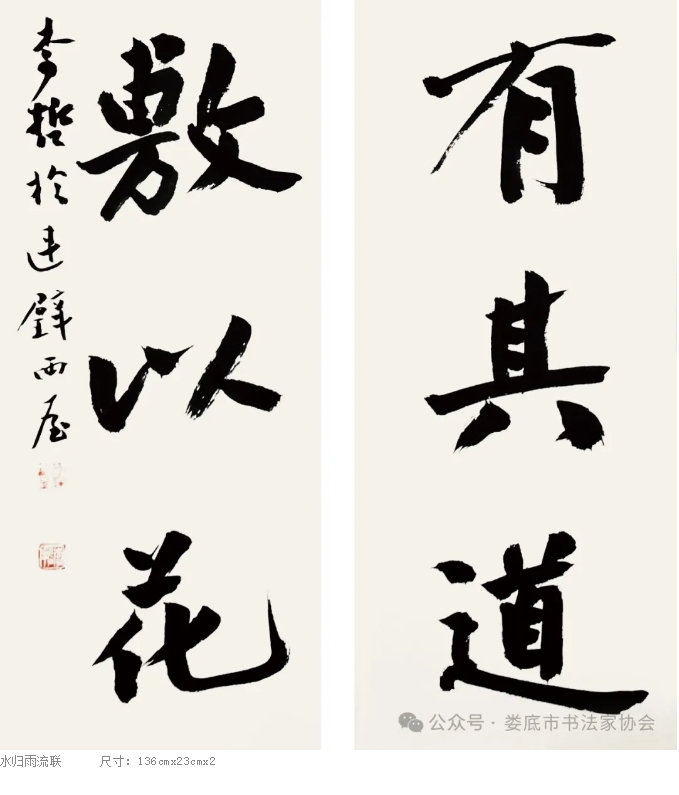 有其道
敷以花
李哲於
公众号·娄底市书法家协会
水归雨流联 尺寸：136cmx23cmx2